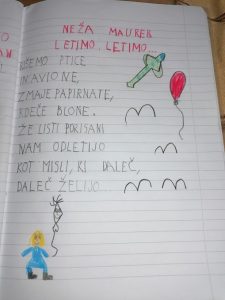 NEŽA MAURER
LETIMO, LETIMO...
RIŠEMO PTICE
IN AVIONE,
ZMAJE PAPIRNATE,
RDEČE BLONE.
ŽE LISTI PORISANI
NAM ODLETIJO
KOT MISLI, KI DALEČ,
DALEČ ŽELIJO.